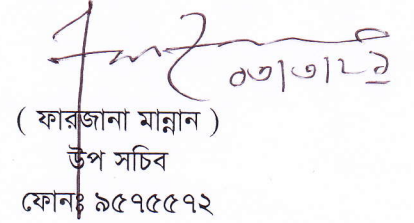 ০৩|৩|২১
( ফারজানা মান্নান )
উপ সচিব
ফোনঃ ৯৫৭৫৫৭২